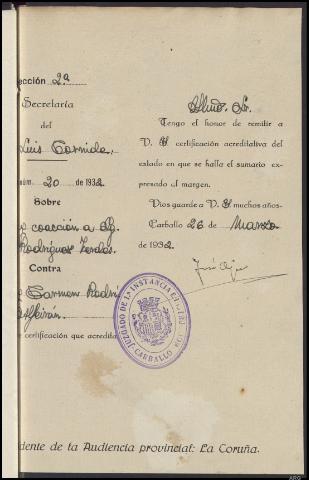 ección 2.ª
Secretaría
del
Luis Cornide,
núm. 20 de 1932
Sobre
coacción a
Rodríguez
Contra
Carmen Rodrí
e certificación que acredita
Ilmo. Sr.
Tengo el honor de remitir a
V. I certificación acreditativa del
estado en que se halla el sumario ex-
presado al margen.
Dios guarde a V. I muchos años.
Carballo 26 de Marzo
de 1932.
JUZGADO DE 1.ª INSTANCIA E INSTRU
CARBALLO
idente de la Audiencia provincial: La Coruña.
ARG